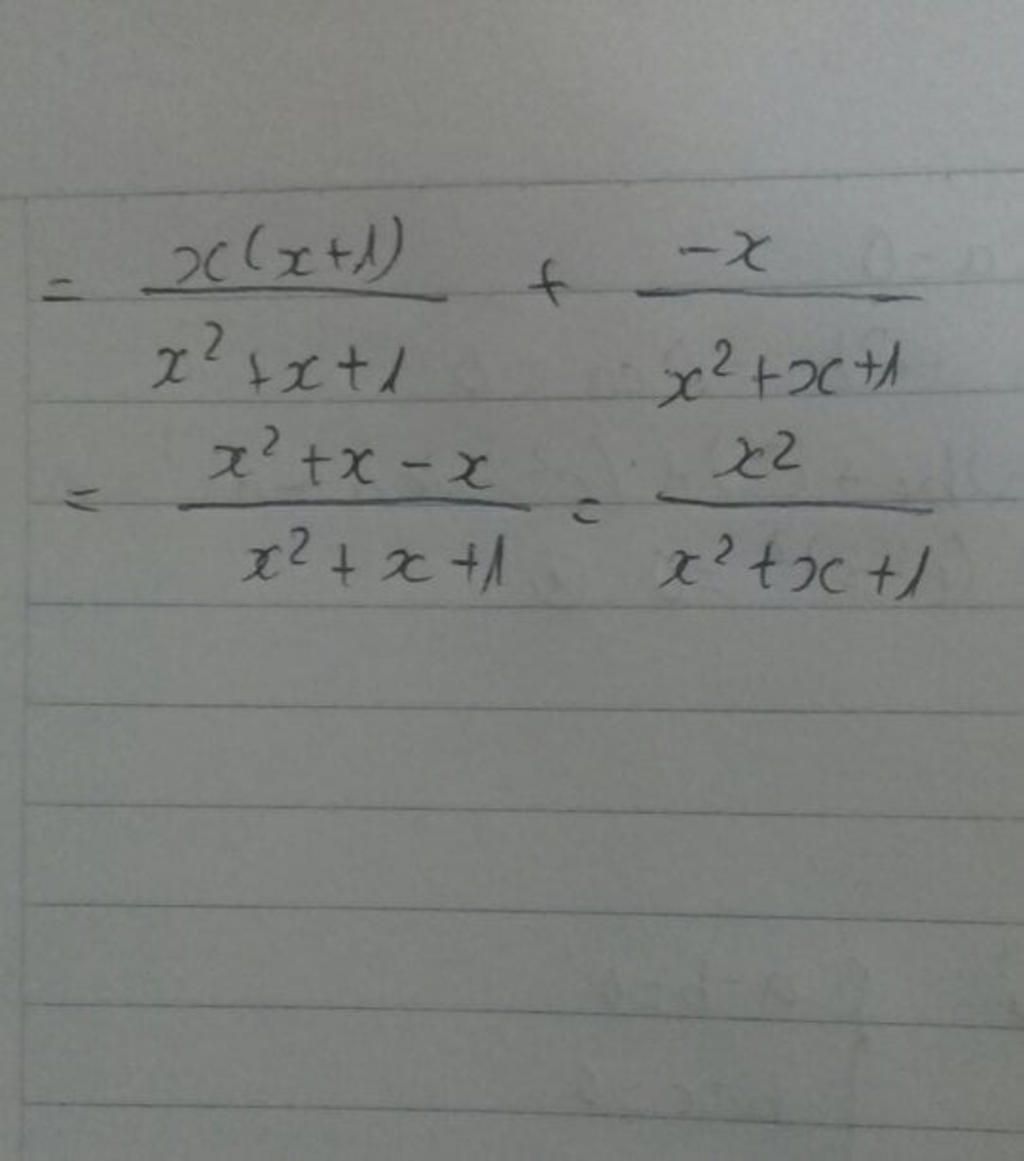 = x(x+1)/(x²+x+1) + -x/(x²+x+1)
= (x²+x-x)/(x²+x+1) = x²/(x²+x+1)